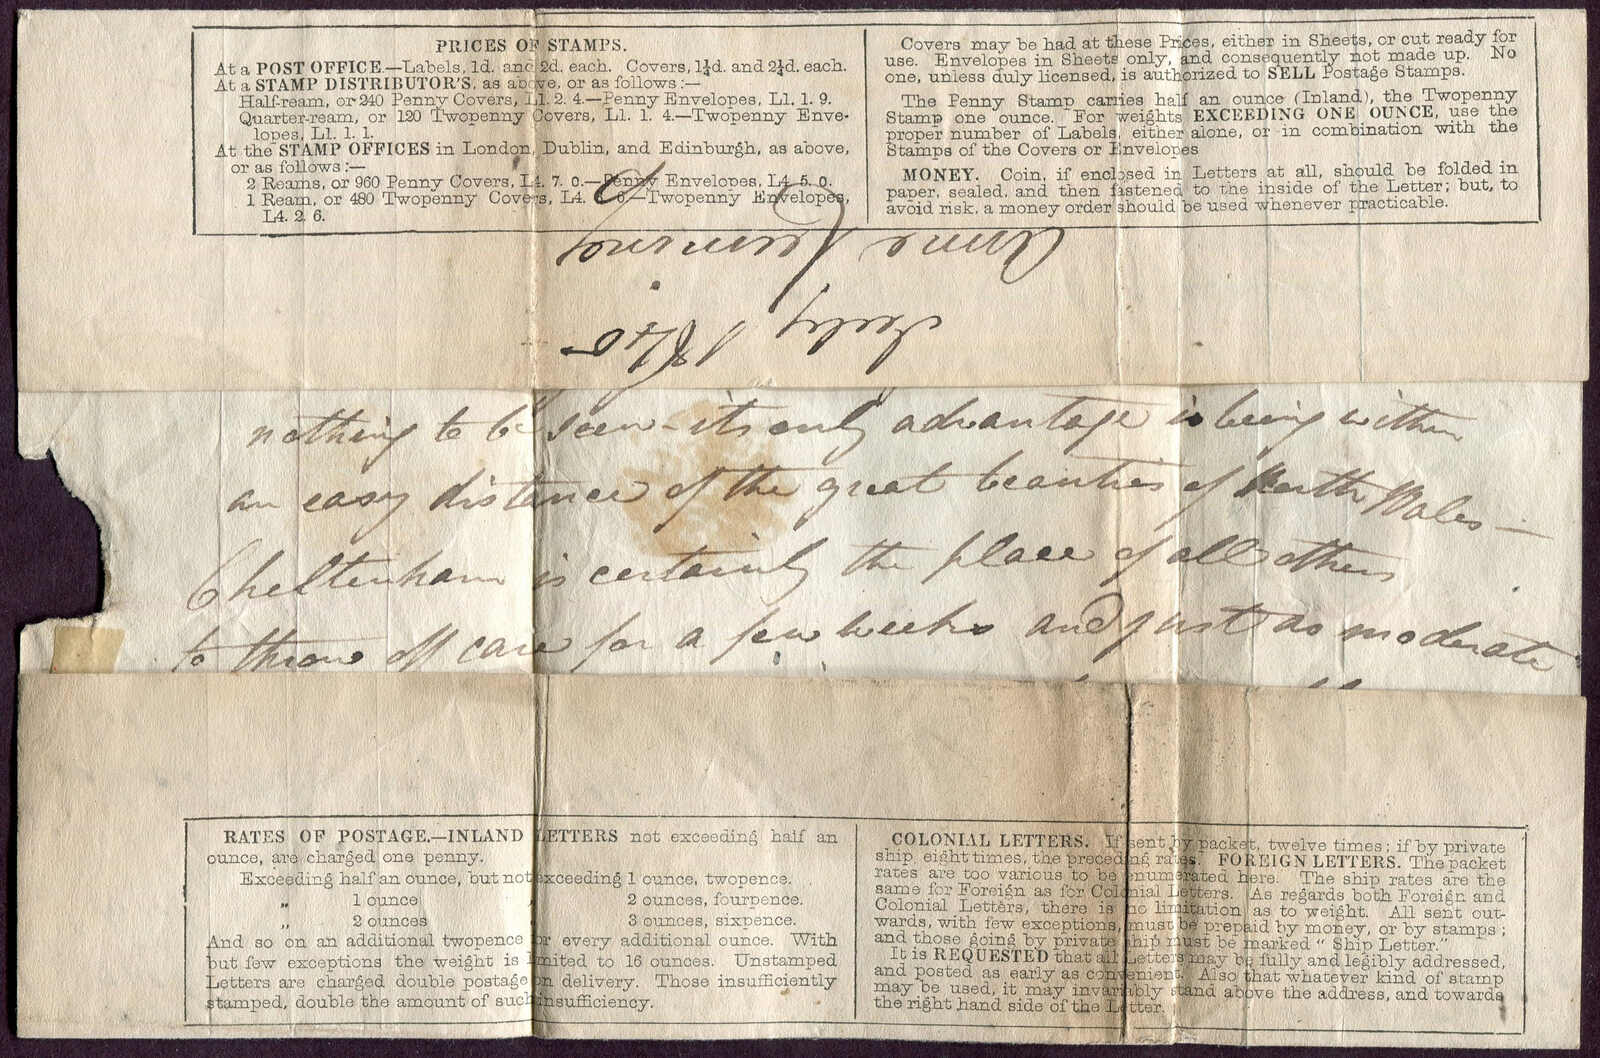 PRICES OF STAMPS.
At a POST OFFICE.—Labels, 1d. and 2d. each. Covers, 1¼d. and 2¼d. each.
At a STAMP DISTRIBUTOR'S, as above, or as follows:—
Half-ream, or 240 Penny Covers, L1. 2. 4.—Penny Envelopes, L1. 1. 9.
Quarter-ream, or 120 Twopenny Covers, L1. 1. 4.—Twopenny Enve-
lopes, L1. 1. 1.
At the STAMP OFFICES in London, Dublin, and Edinburgh, as above,
or as follows:—
2 Reams, or 960 Penny Covers, L4. 7. 0.—Penny Envelopes, L4 5. 0.
1 Ream, or 480 Twopenny Covers, L4. 6.—Twopenny Envelopes,
L4. 2 6.
Covers may be had at these Prices, either in Sheets, or cut ready for
use. Envelopes in Sheets only, and consequently not made up. No
one, unless duly licensed, is authorized to SELL Postage Stamps.
The Penny Stamp carries half an ounce (Inland), the Twopenny
Stamp one ounce. For weights EXCEEDING ONE OUNCE, use the
proper number of Labels, either alone, or in combination with the
Stamps of the Covers or Envelopes
MONEY. Coin, if enclosed in Letters at all, should be folded in
paper, sealed, and then fastened to the inside of the Letter; but, to
avoid risk, a money order should be used whenever practicable.
July 1840
Anne
nothing to be seen - its only advantage is being within
an easy distance of the great beauties of North Wales —
Cheltenham is certainly the place of all others
to throw off care for a few weeks and just as moderate
RATES OF POSTAGE.—INLAND LETTERS not exceeding half an
ounce, are charged one penny.
Exceeding half an ounce, but not exceeding 1 ounce, twopence.
„ 1 ounce „ 2 ounces, fourpence.
„ 2 ounces „ 3 ounces, sixpence.
And so on an additional twopence for every additional ounce. With
but few exceptions the weight is limited to 16 ounces. Unstamped
Letters are charged double postage on delivery. Those insufficiently
stamped, double the amount of such insufficiency.
COLONIAL LETTERS. If sent by packet, twelve times; if by private
ship, eight times, the preceding rates. FOREIGN LETTERS. The packet
rates are too various to be enumerated here. The ship rates are the
same for Foreign as for Colonial Letters. As regards both Foreign and
Colonial Letters, there is no limitation as to weight. All sent out-
wards, with few exceptions, must be prepaid by money, or by stamps;
and those going by private ship must be marked "Ship Letter."
It is REQUESTED that all Letters may be fully and legibly addressed,
and posted as early as convenient. Also that whatever kind of stamp
may be used, it may invariably stand above the address, and towards
the right hand side of the Letter.